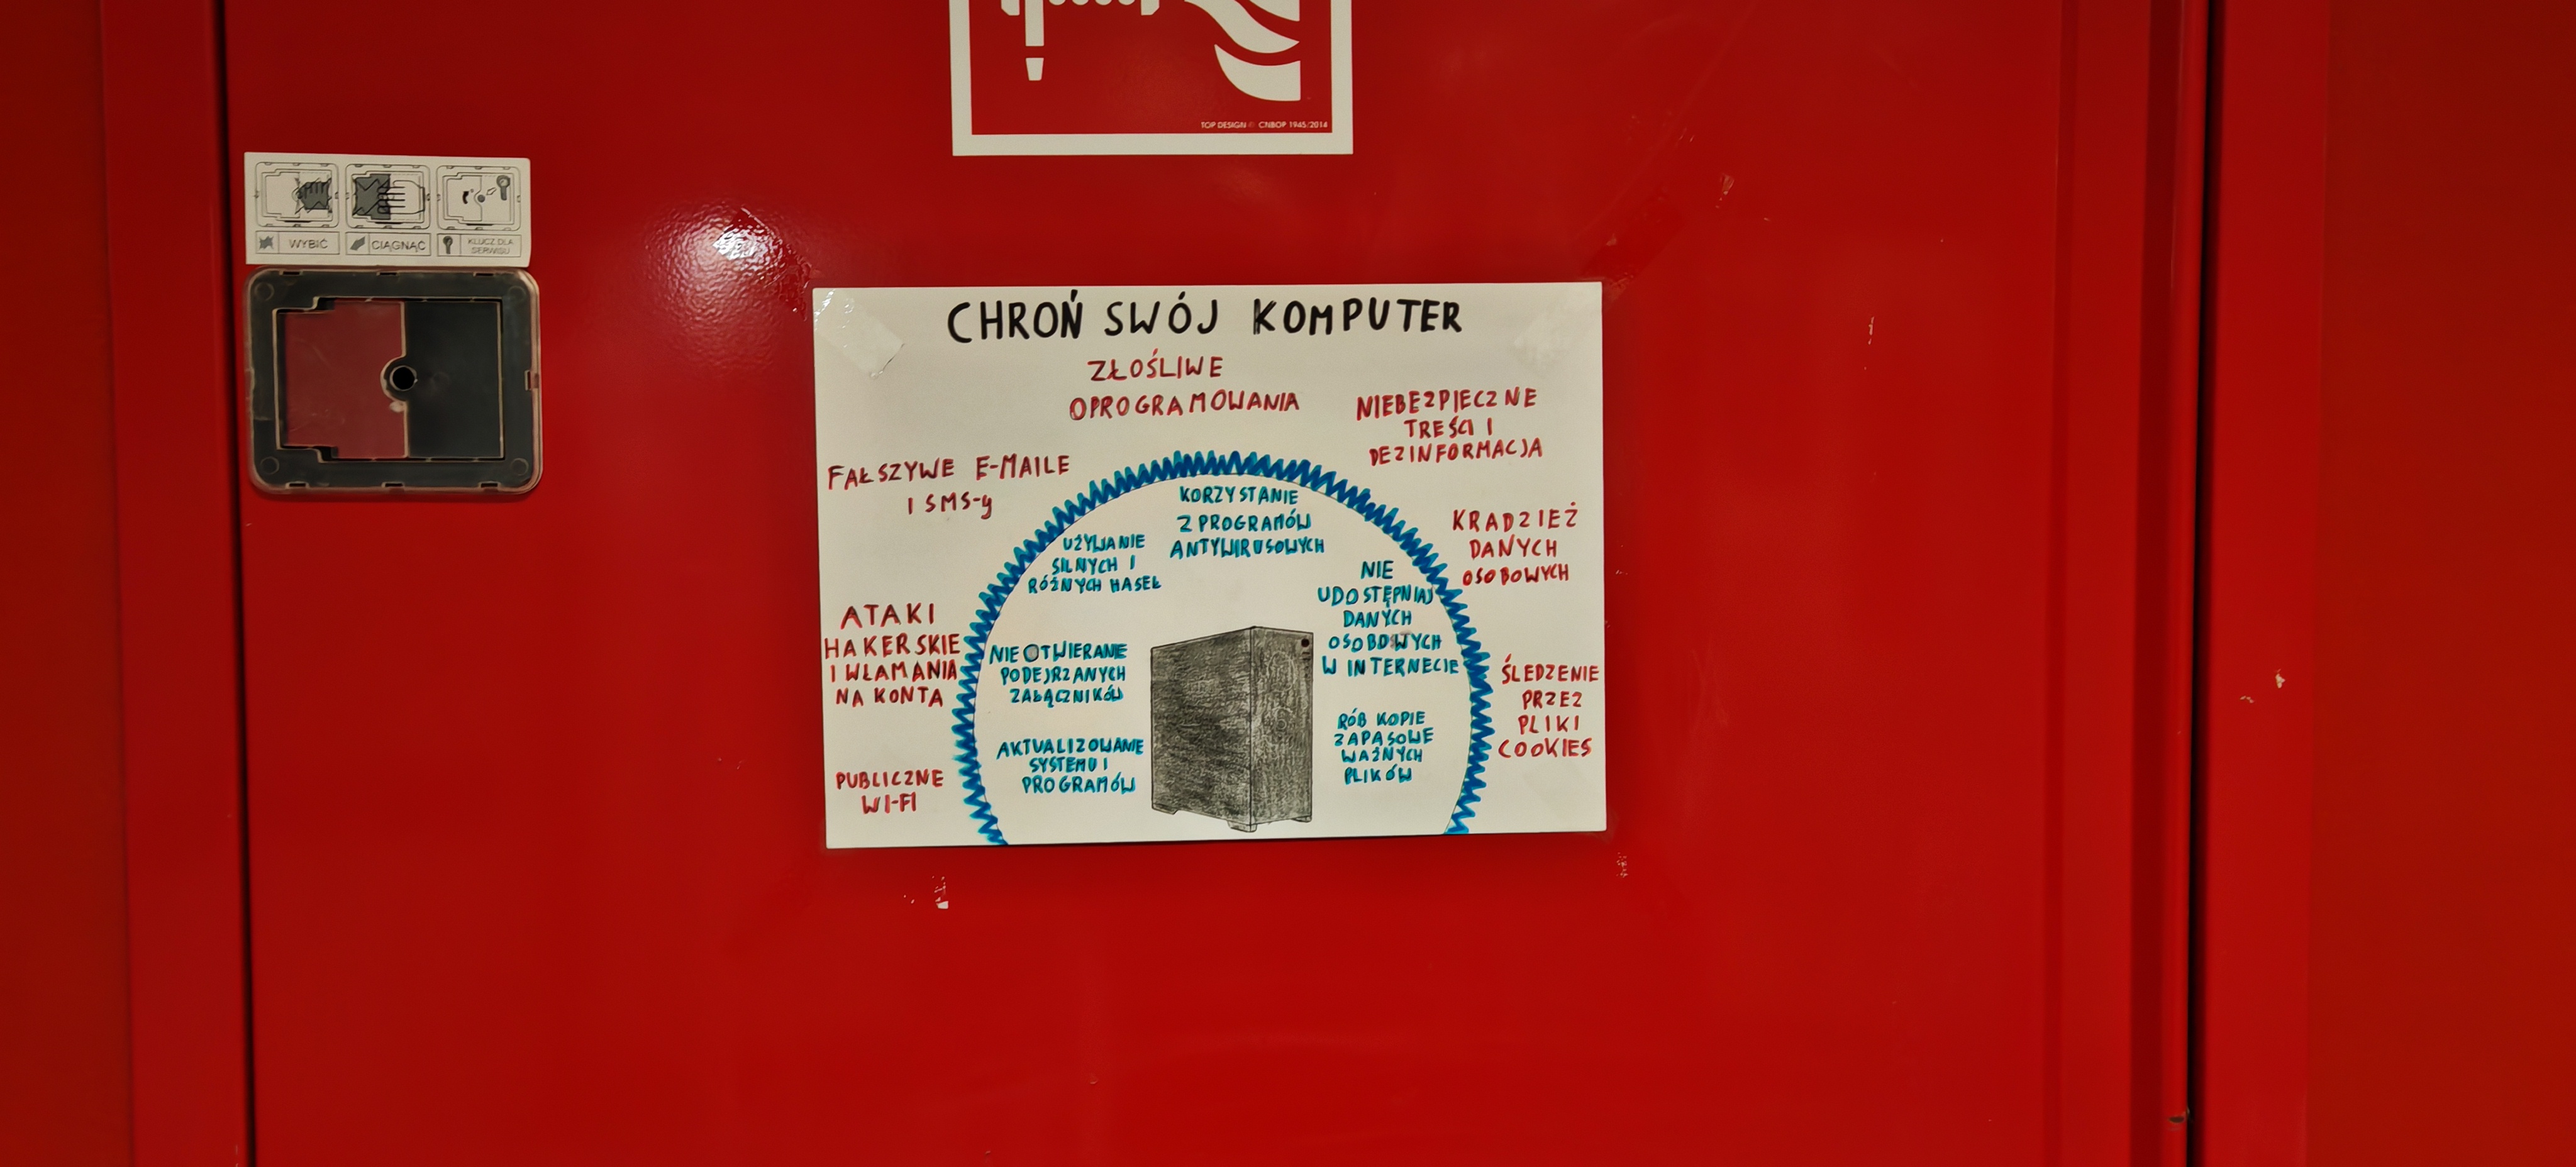 TOP DESIGN © CNBOP 1945/2014
WYBIĆ
CIĄGNĄĆ
KLUCZ DLA
SERWISU
CHROŃ SWÓJ KOMPUTER
ZŁOŚLIWE
OPROGRAMOWANIA
NIEBEZPIECZNE
TREŚCI I
DEZINFORMACJA
FAŁSZYWE E-MAILE
I SMS-y
KRADZIEŻ
DANYCH
OSOBOWYCH
ATAKI
HAKERSKIE
I WŁAMANIA
NA KONTA
ŚLEDZENIE
PRZEZ
PLIKI
COOKIES
PUBLICZNE
WI-FI
KORZYSTANIE
Z PROGRAMÓW
ANTYWIRUSOWYCH
UŻYWANIE
SILNYCH I
RÓŻNYCH HASEŁ
NIE
UDOSTĘPNIAJ
DANYCH
OSOBOWYCH
W INTERNECIE
NIE OTWIERANIE
PODEJRZANYCH
ZAŁĄCZNIKÓW
AKTUALIZOWANIE
SYSTEMU I
PROGRAMÓW
RÓB KOPIE
ZAPASOWE
WAŻNYCH
PLIKÓW